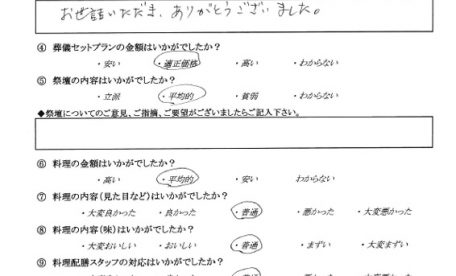 お世話いただき、ありがとうございました。
④ 葬儀セットプランの金額はいかがでしたか？
・安い ・適正価格 ・高い ・わからない
⑤ 祭壇の内容はいかがでしたか？
・立派 ・平均的 ・貧弱 ・わからない
◆祭壇についてのご意見、ご指摘、ご要望がございましたらご記入下さい。
⑥ 料理の金額はいかがでしたか？
・高い ・平均的 ・安い わからない
⑦ 料理の内容（見た目など）はいかがでしたか？
・大変良かった ・良かった ・普通 ・悪かった ・大変悪かった
⑧ 料理の内容（味）はいかがでしたか？
・大変おいしい ・おいしい ・普通 ・まずい ・大変まずい
⑨ 料理配膳スタッフの対応はいかがでしたか？